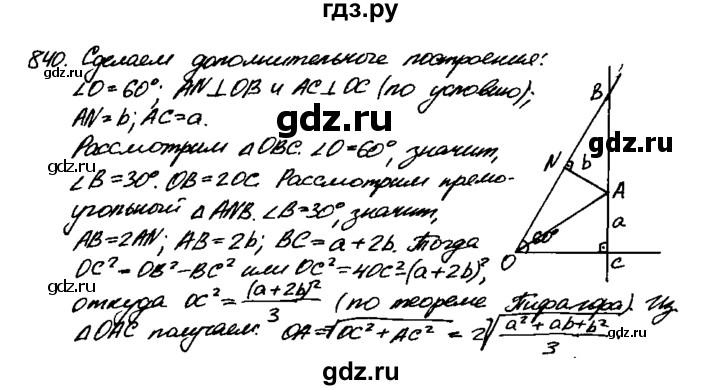 гдз.ру
840. Сделаем дополнительные построения:
∠O=60°; AN⊥OB и AC⊥OC (по условию);
AN=b; AC=a.
gdz.ru
Рассмотрим △OBC. ∠O=60°, значит,
∠B=30°. OB=2OC. Рассмотрим прямо-
угольный △ANB. ∠B=30°, значит,
AB=2AN; AB=2b; BC=a+2b. Тогда
OC²=OB²-BC² или OC²=4OC²-(a+2b)²,
откуда OC²=(a+2b)²/3 (по теореме Пифагора). Из
△OAC получаем: OA=√(OC²+AC²)=2√((a²+ab+b²)/3)
B
gdz.ru
N b
A
a
60°
O
C
gdz.ru
gdz.ru